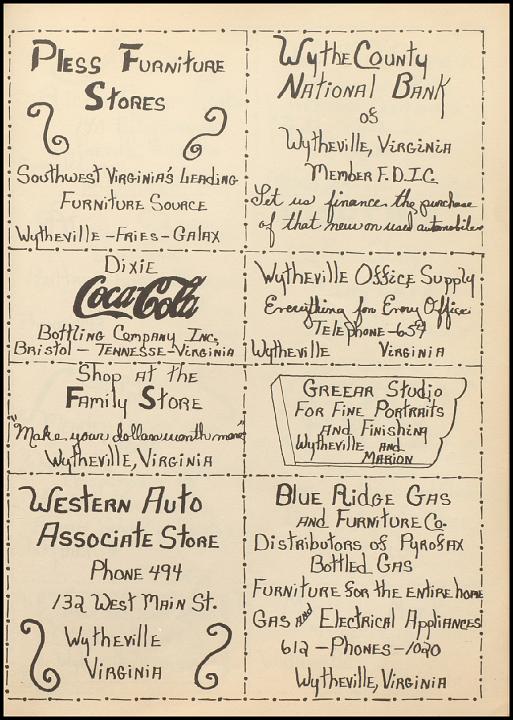 Pless Furniture
Stores
Southwest Virginia's Leading
Furniture Source
Wytheville - Fries - Galax
Wythe County
National Bank
of
Wytheville, Virginia
Member F.D.I.C.
Let us finance the purchase
of that new or used automobile
Dixie
Coca-Cola
Bottling Company Inc.
Bristol - Tennessee - Virginia
Wytheville Office Supply
Everything for Every Office
Telephone - 659
Wytheville Virginia
Shop at the
Family Store
"Make your dollars worth more"
Wytheville, Virginia
Greear Studio
For Fine Portraits
and Finishing
Wytheville and
Marion
Western Auto
Associate Store
Phone 494
132 West Main St.
Wytheville
Virginia
Blue Ridge Gas
and Furniture Co.
Distributors of Pyrofax
Bottled Gas
Furniture for the entire home
Gas and Electrical Appliances
612 - Phones - 1020
Wytheville, Virginia